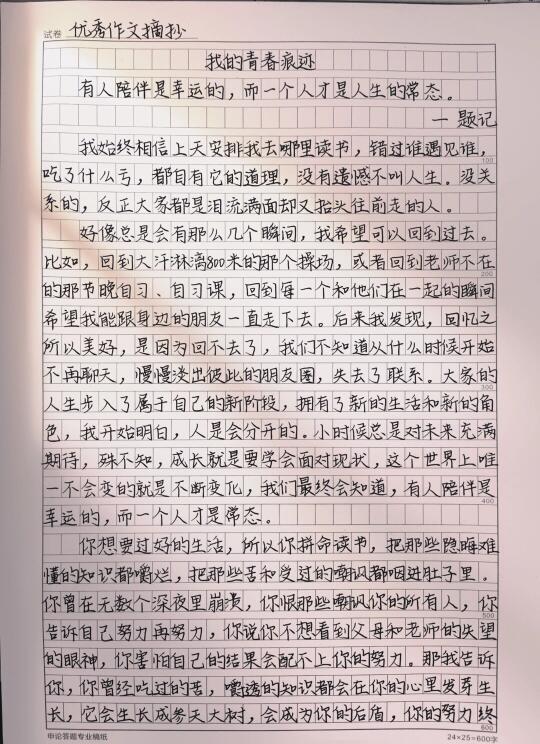 试卷 优秀作文摘抄
我的青春痕迹
有人陪伴是幸运的，而一个人才是人生的常态。
一 题记
我始终相信上天安排我去哪里读书，错过谁遇见谁，
100
吃了什么亏，都自有它的道理，没有遗憾不叫人生。没关
系的，反正大家都是泪流满面却又抬头往前走的人。
好像总是会有那么几个瞬间，我希望可以回到过去。
比如，回到大汗淋漓800米的那个操场，或者回到老师不在
200
的那节晚自习、自习课，回到每一个和他们在一起的瞬间
希望我能跟身边的朋友一直走下去。后来我发现，回忆之
所以美好，是因为回不去了，我们不知道从什么时候开始
不再聊天，慢慢淡出彼此的朋友圈，失去了联系。大家的
300
人生步入了属于自己的新阶段，拥有了新的生活和新的角
色，我开始明白，人是会分开的。小时候总是对未来充满
期待，殊不知，成长就是要学会面对现状，这个世界上唯
一不会变的就是不断变化，我们最终会知道，有人陪伴是
400
幸运的，而一个人才是常态。
你想要过好的生活，所以你拼命读书，把那些隐晦难
懂的知识都嚼烂，把那些苦和受过的嘲讽都咽进肚子里。
你曾在无数个深夜里崩溃，你恨那些嘲讽你的所有人，你
500
告诉自己努力再努力，你说你不想看到父母和老师的失望
的眼神，你害怕自己的结果会配不上你的努力。那我告诉
你，你曾经吃过的苦，嚼透的知识都会在你的心里发芽生
长，它会生长成参天大树，会成为你的后盾，你的努力终
600
申论答题专业稿纸 24×25=600字